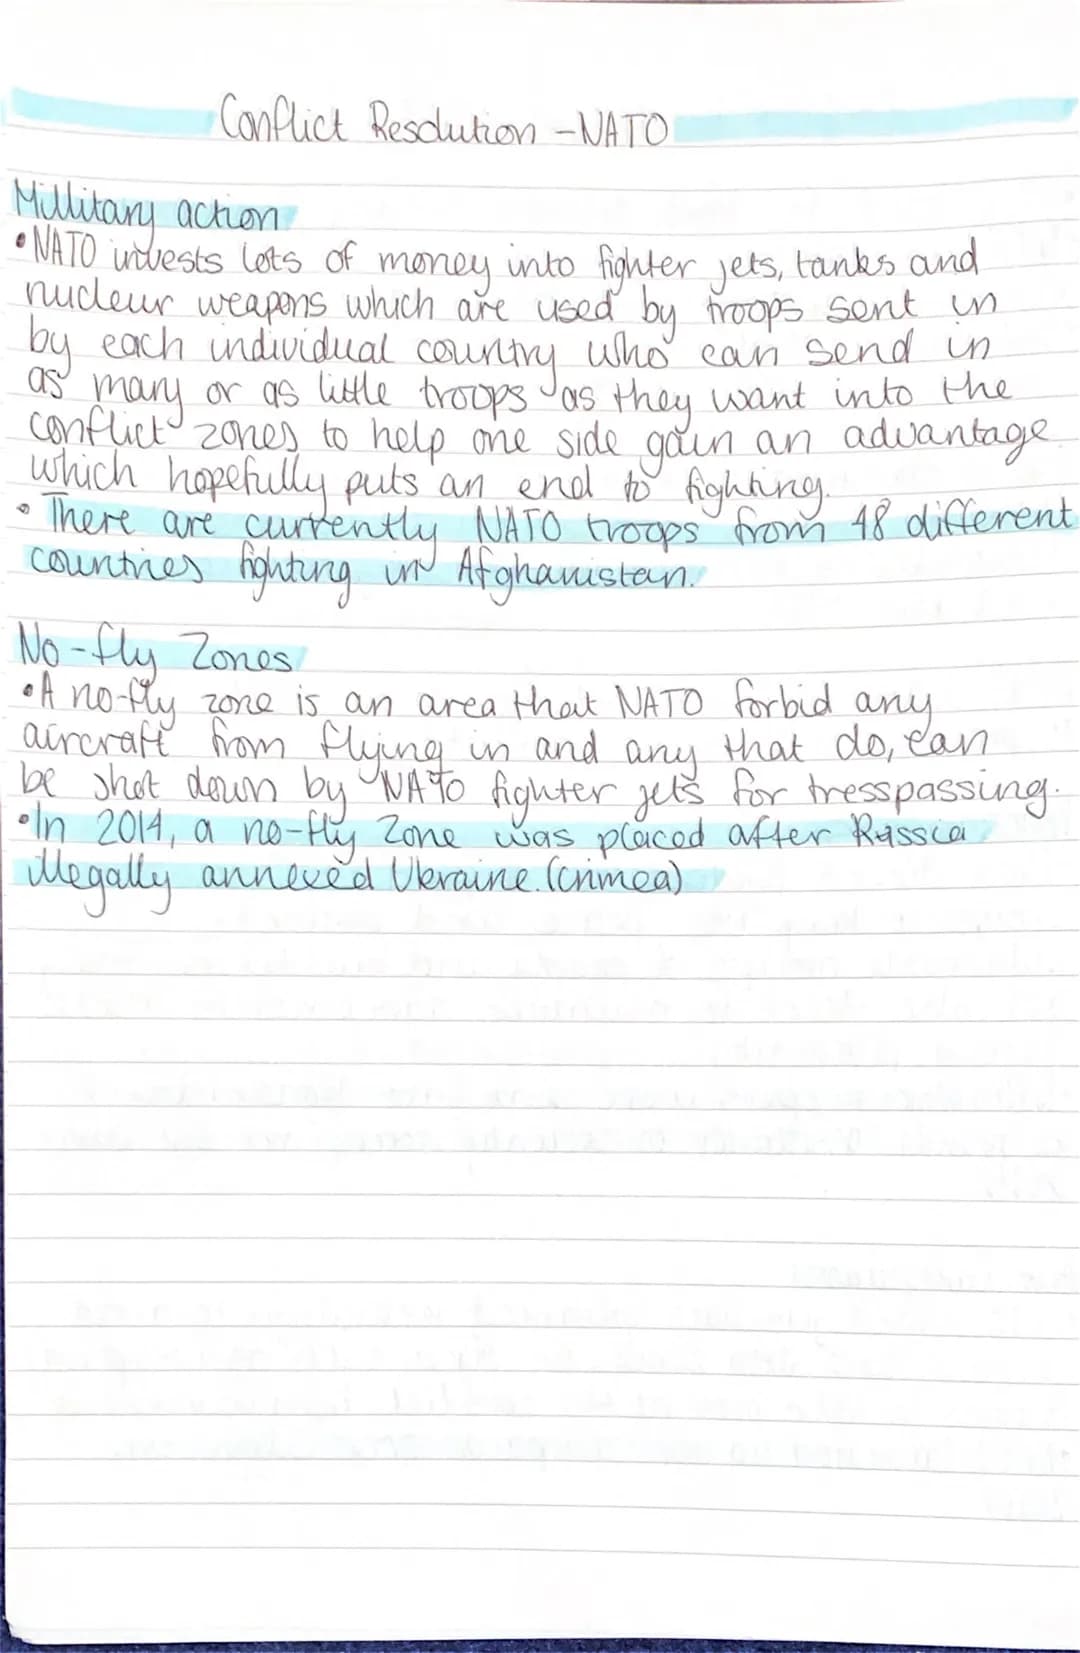 Conflict Resolution - NATO
Millitary action
• NATO invests lots of money into fighter jets, tanks and
nucleur weapons which are used by troops sent in
by each individual country who can send in
as many or as little troops as they want into the
conflict zones to help one side gain an advantage
which hopefully puts an end to fighting.
• There are currently NATO troops from 48 different
countries fighting in Afghanistan.
No-fly Zones
• A no-fly zone is an area that NATO forbid any
aircraft from flying in and any that do, can
be shot down by NATO fighter jets for tresspassing.
• In 2014, a no-fly zone was placed after Russia
illegally annexed Ukraine. (Crimea)